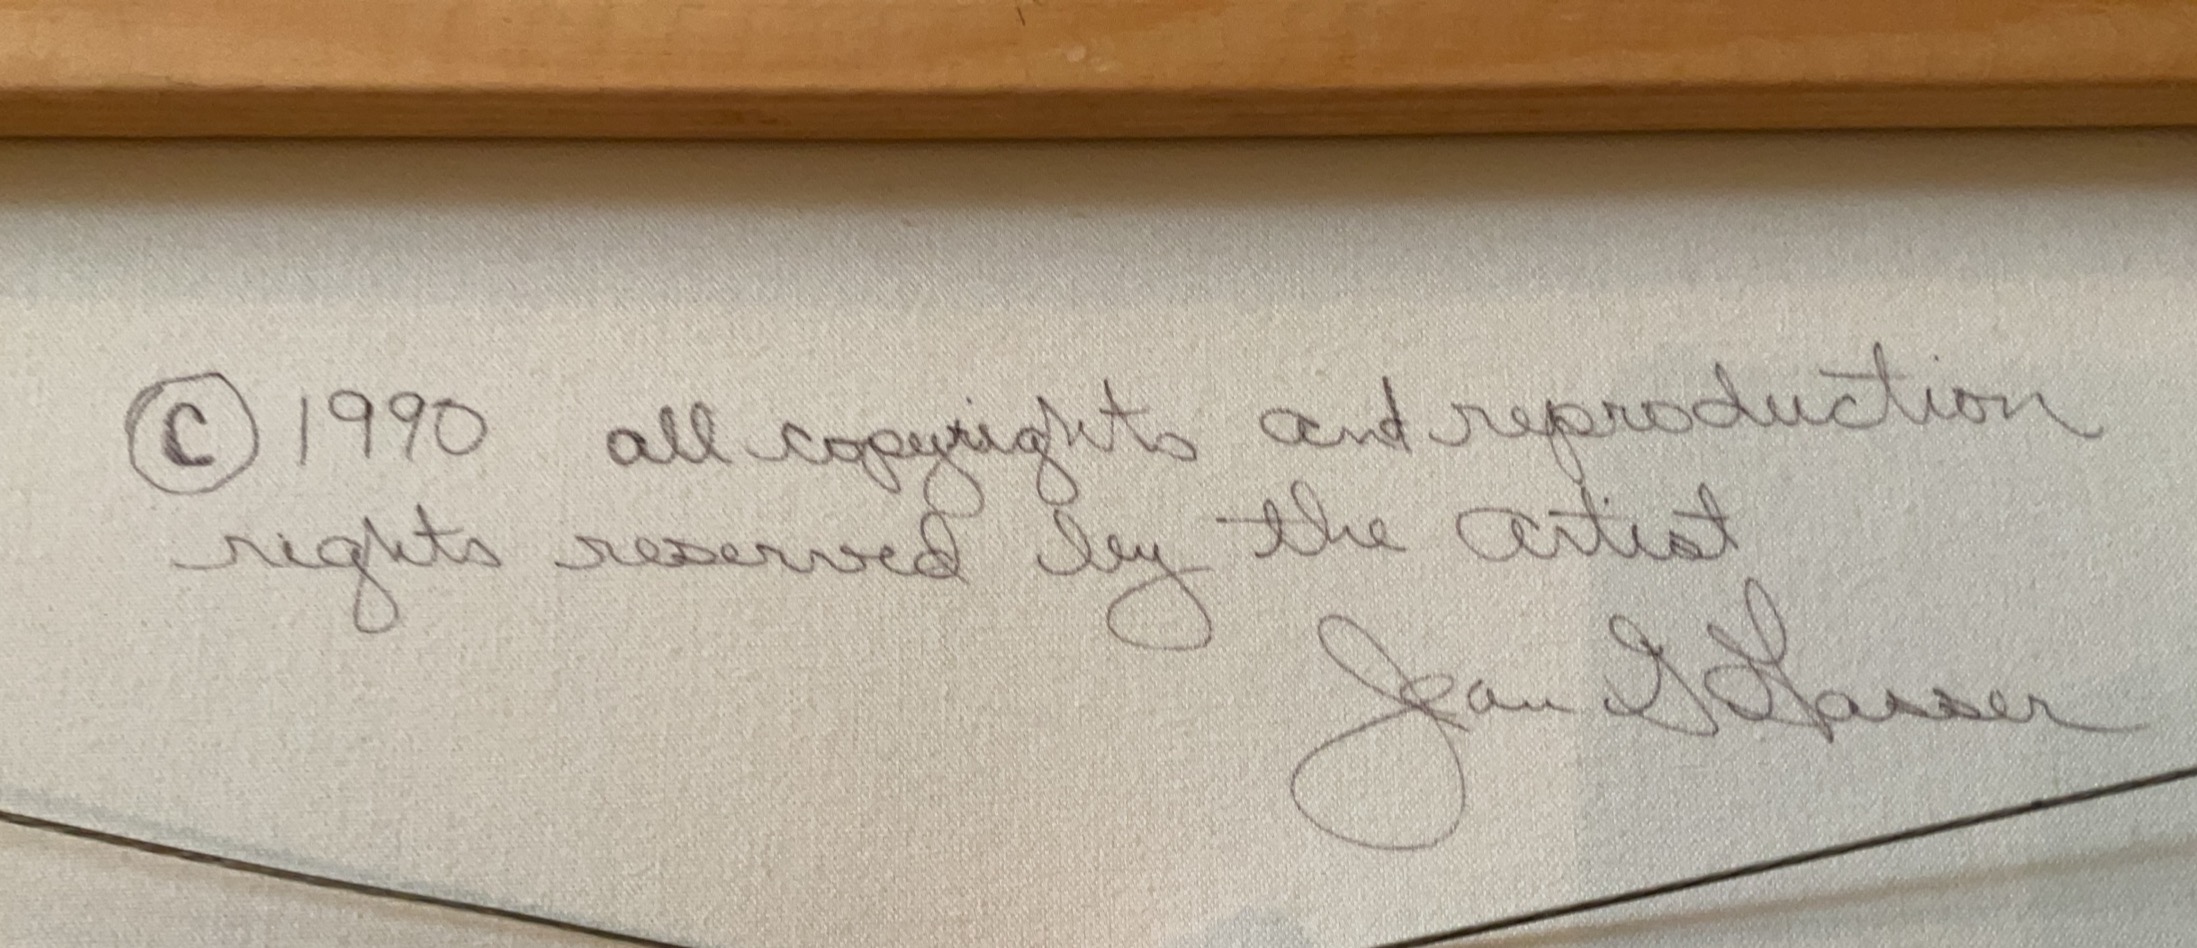 © 1990 all copyrights and reproduction
rights reserved by the artist
Jean G Gasser